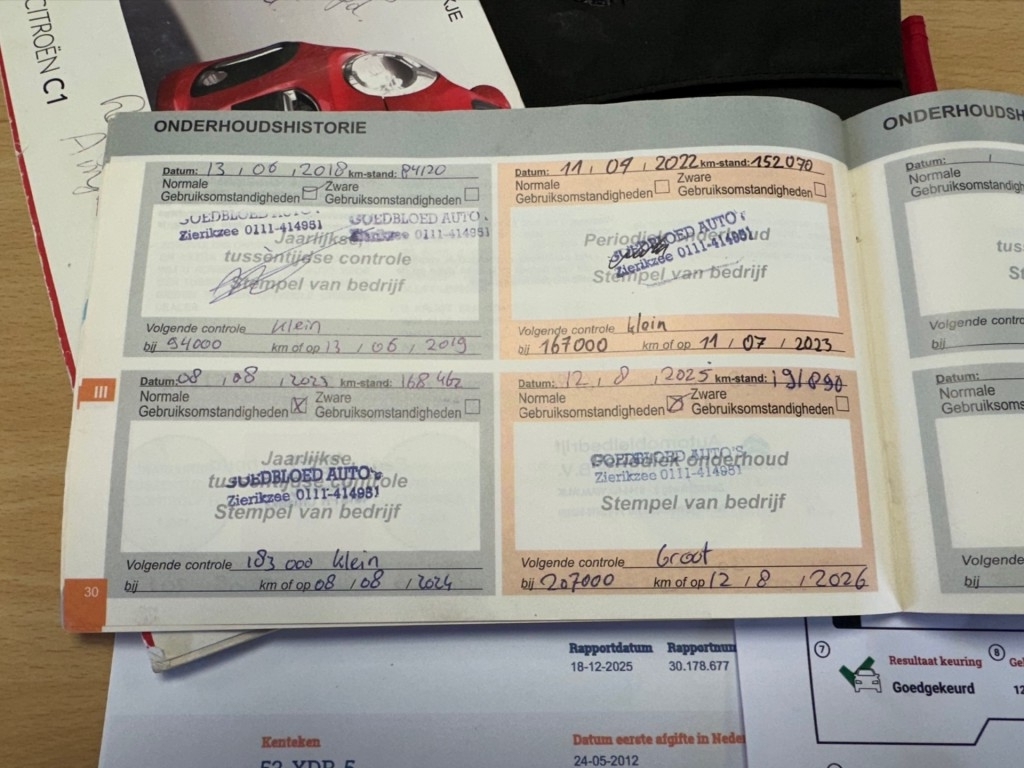 CITROËN C1
ONDERHOUDSHISTORIE
Datum: 13 , 06 , 2018 km-stand: 84120
Normale
Gebruiksomstandigheden
Zware
Gebruiksomstandigheden
GOEDBLOED AUTO'S
Zierikzee 0111-414951
GOEDBLOED AUTO'S
Zierikzee 0111-414951
Jaarlijkse,
tussentijdse controle
Stempel van bedrijf
Volgende controle klein
bij 94000 km of op 13 , 06 , 2019
Datum: 11 , 07 , 2022 km-stand: 152070
Normale
Gebruiksomstandigheden
Zware
Gebruiksomstandigheden
GOEDBLOED AUTO'S
Zierikzee 0111-414951
Periodiek onderhoud
Stempel van bedrijf
Volgende controle klein
bij 167000 km of op 11 , 07 , 2023
III
Datum: 08 , 08 , 2023 km-stand: 168462
Normale
Gebruiksomstandigheden
Zware
Gebruiksomstandigheden
Jaarlijkse,
tussentijdse controle
GOEDBLOED AUTO'S
Zierikzee 0111-414951
Stempel van bedrijf
Volgende controle 183 000 klein
bij km of op 08 , 08 , 2024
Datum: 12 , 8 , 2025 km-stand: 191890
Normale
Gebruiksomstandigheden
Zware
Gebruiksomstandigheden
GOEDBLOED AUTO'S
Periodiek onderhoud
Zierikzee 0111-414951
Stempel van bedrijf
Volgende controle Groot
bij 207000 km of op 12 , 8 , 2026
30
ONDERHOUDSH
Datum:
Normale
Gebruiksomst
Volgende controle
bij
Datum:
Normale
Gebruiksoms
Volgende controle
bij
Rapportdatum Rapportnum
18-12-2025 30.178.677
Kenteken
Datum eerste afgifte in Nede
24-05-2012
7
Resultaat keuring
Goedgekeurd
8